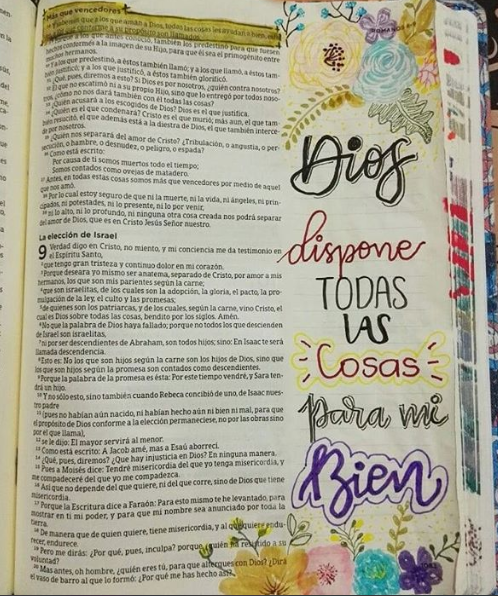 Más que vencedores
28 Y sabemos que a los que aman a Dios, todas las cosas les ayudan a bien, esto
es, a los que conforme a su propósito son llamados.
29 Porque a los que antes conoció, también los predestinó para que fuesen
hechos conformes a la imagen de su Hijo, para que él sea el primogénito entre
muchos hermanos.
30 Y a los que predestinó, a éstos también llamó; y a los que llamó, a éstos tam-
bién justificó; y a los que justificó, a éstos también glorificó.
31 ¿Qué, pues, diremos a esto? Si Dios es por nosotros, ¿quién contra nosotros?
32 El que no escatimó ni a su propio Hijo, sino que lo entregó por todos noso-
tros, ¿cómo no nos dará también con él todas las cosas?
33 ¿Quién acusará a los escogidos de Dios? Dios es el que justifica.
34 ¿Quién es el que condenará? Cristo es el que murió; más aun, el que tam-
bién resucitó, el que además está a la diestra de Dios, el que también interce-
de por nosotros.
35 ¿Quién nos separará del amor de Cristo? ¿Tribulación, o angustia, o per-
secución, o hambre, o desnudez, o peligro, o espada?
36 Como está escrito:
Por causa de ti somos muertos todo el tiempo;
Somos contados como ovejas de matadero.
37 Antes, en todas estas cosas somos más que vencedores por medio de aquel
que nos amó.
38 Por lo cual estoy seguro de que ni la muerte, ni la vida, ni ángeles, ni prin-
cipados, ni potestades, ni lo presente, ni lo por venir,
39 ni lo alto, ni lo profundo, ni ninguna otra cosa creada nos podrá separar
del amor de Dios, que es en Cristo Jesús Señor nuestro.
La elección de Israel
9 Verdad digo en Cristo, no miento, y mi conciencia me da testimonio en
el Espíritu Santo,
2 que tengo gran tristeza y continuo dolor en mi corazón.
3 Porque deseara yo mismo ser anatema, separado de Cristo, por amor a mis
hermanos, los que son mis parientes según la carne;
4 que son israelitas, de los cuales son la adopción, la gloria, el pacto, la pro-
mulgación de la ley, el culto y las promesas;
5 de quienes son los patriarcas, y de los cuales, según la carne, vino Cristo, el
cual es Dios sobre todas las cosas, bendito por los siglos. Amén.
6 No que la palabra de Dios haya fallado; porque no todos los que descienden
de Israel son israelitas,
7 ni por ser descendientes de Abraham, son todos hijos; sino: En Isaac te será
llamada descendencia.
8 Esto es: No los que son hijos según la carne son los hijos de Dios, sino que
los que son hijos según la promesa son contados como descendientes.
9 Porque la palabra de la promesa es ésta: Por este tiempo vendré, y Sara ten-
drá un hijo.
10 Y no sólo esto, sino también cuando Rebeca concibió de uno, de Isaac nues-
tro padre
11 (pues no habían aún nacido, ni habían hecho aún ni bien ni mal, para que
el propósito de Dios conforme a la elección permaneciese, no por las obras sino
por el que llama),
12 se le dijo: El mayor servirá al menor.
13 Como está escrito: A Jacob amé, mas a Esaú aborrecí.
14 ¿Qué, pues, diremos? ¿Que hay injusticia en Dios? En ninguna manera.
15 Pues a Moisés dice: Tendré misericordia del que yo tenga misericordia, y
me compadeceré del que yo me compadezca.
16 Así que no depende del que quiere, ni del que corre, sino de Dios que tiene
misericordia.
17 Porque la Escritura dice a Faraón: Para esto mismo te he levantado, para
mostrar en ti mi poder, y para que mi nombre sea anunciado por toda la
tierra.
18 De manera que de quien quiere, tiene misericordia, y al que quiere endu-
recer, endurece.
19 Pero me dirás: ¿Por qué, pues, inculpa? porque ¿quién ha resistido a su
voluntad?
20 Mas antes, oh hombre, ¿quién eres tú, para que alterques con Dios? ¿Dirá
el vaso de barro al que lo formó: ¿Por qué me has hecho así?
ROMANOS 8-9
Dios
dispone
TODAS
LAS
Cosas
para mi
Bien